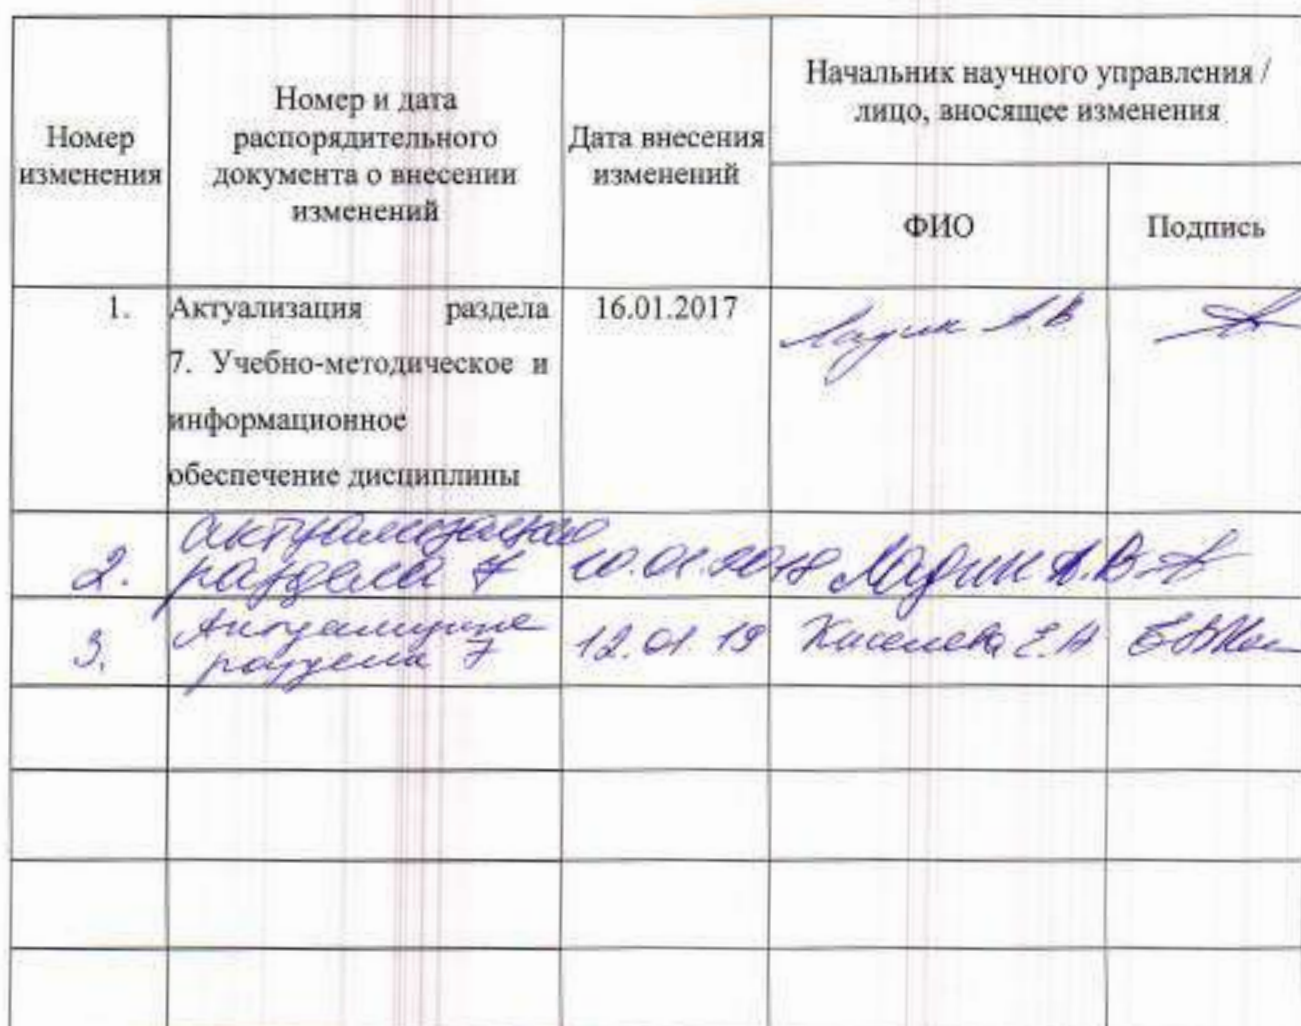 Номер
изменения
Номер и дата
распорядительного
документа о внесении
изменений
Дата внесения
изменений
Начальник научного управления /
лицо, вносящее изменения
ФИО
Подпись
1.
Актуализация раздела
7. Учебно-методическое и
информационное
обеспечение дисциплины
16.01.2017
Ладик А.В
2.
актуализация
раздела 7
10.01.2018
Ладик А.В
3.
Актуализация
раздела 7
12.01.19
Киселева Е.А